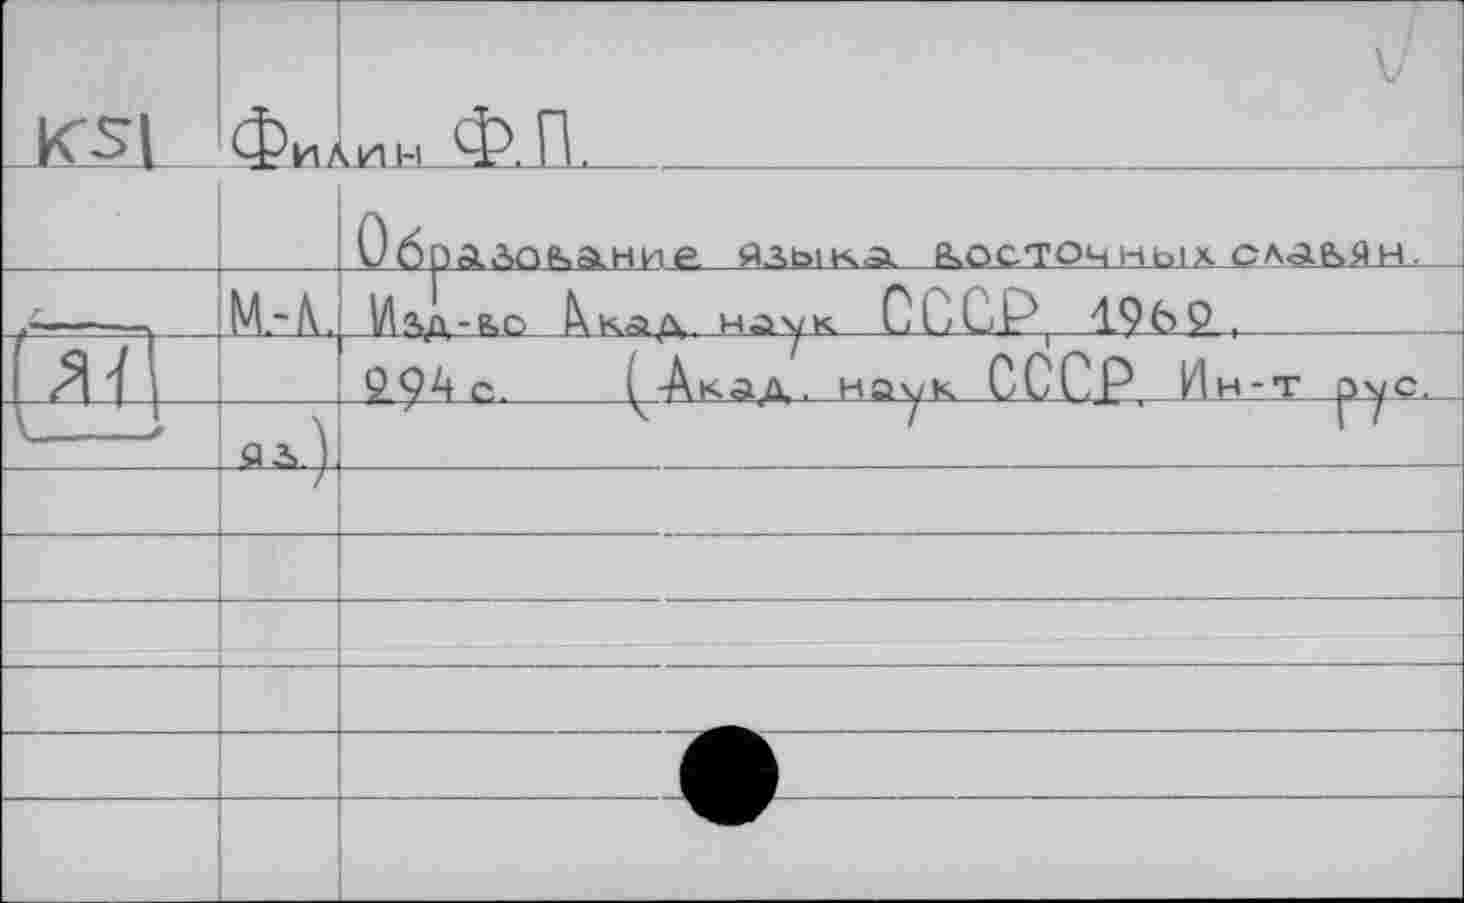 KS1 Филин Ф.П.
Образование языка восточных славян.
М.-Л. Изд-во Акад. наук СССР, 1962,
Я1 294 с. (Акад. наук СССР. Ин-т рус.
яз.)